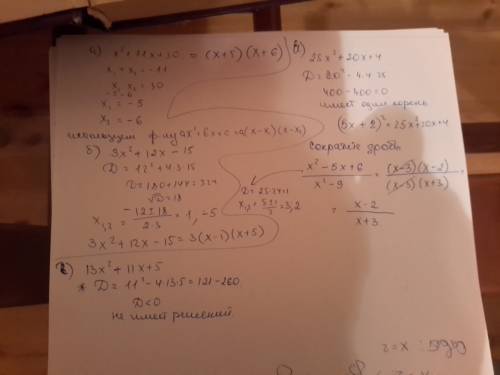 а) x² + 11x + 30 = (x+5)(x+6)
x₁ + x₂ = -11
x₁ x₂ = 30
-5 -6
x₁ = -5
x₂ = -6
используем ф-лу ax²+bx+c=a(x-x₁)(x-x₂)
б) 3x² + 12x - 15
D = 12² + 4·3·15
D = 180 + 144 = 324
√D = 18
x₁,₂ = (-12 ± 18)/(2·3) = 1, -5
3x² + 12x - 15 = 3(x-1)(x+5)
в) 13x² + 11x + 5
* D = 11² - 4·13·5 = 121 - 260
D < 0
не имеет решений
25x² + 20x + 4
D = 20² - 4·4·25
400 - 400 = 0
имеет один корень
(5x + 2)² = 25x² + 20x + 4
сократить дробь
(x² - 5x + 6)/(x² - 9) = (x-3)(x-2)/(x-3)(x+3) =
= (x-2)/(x+3)
D = 25-24=1
x₁,₂ = (5±1)/2 = 3, 2